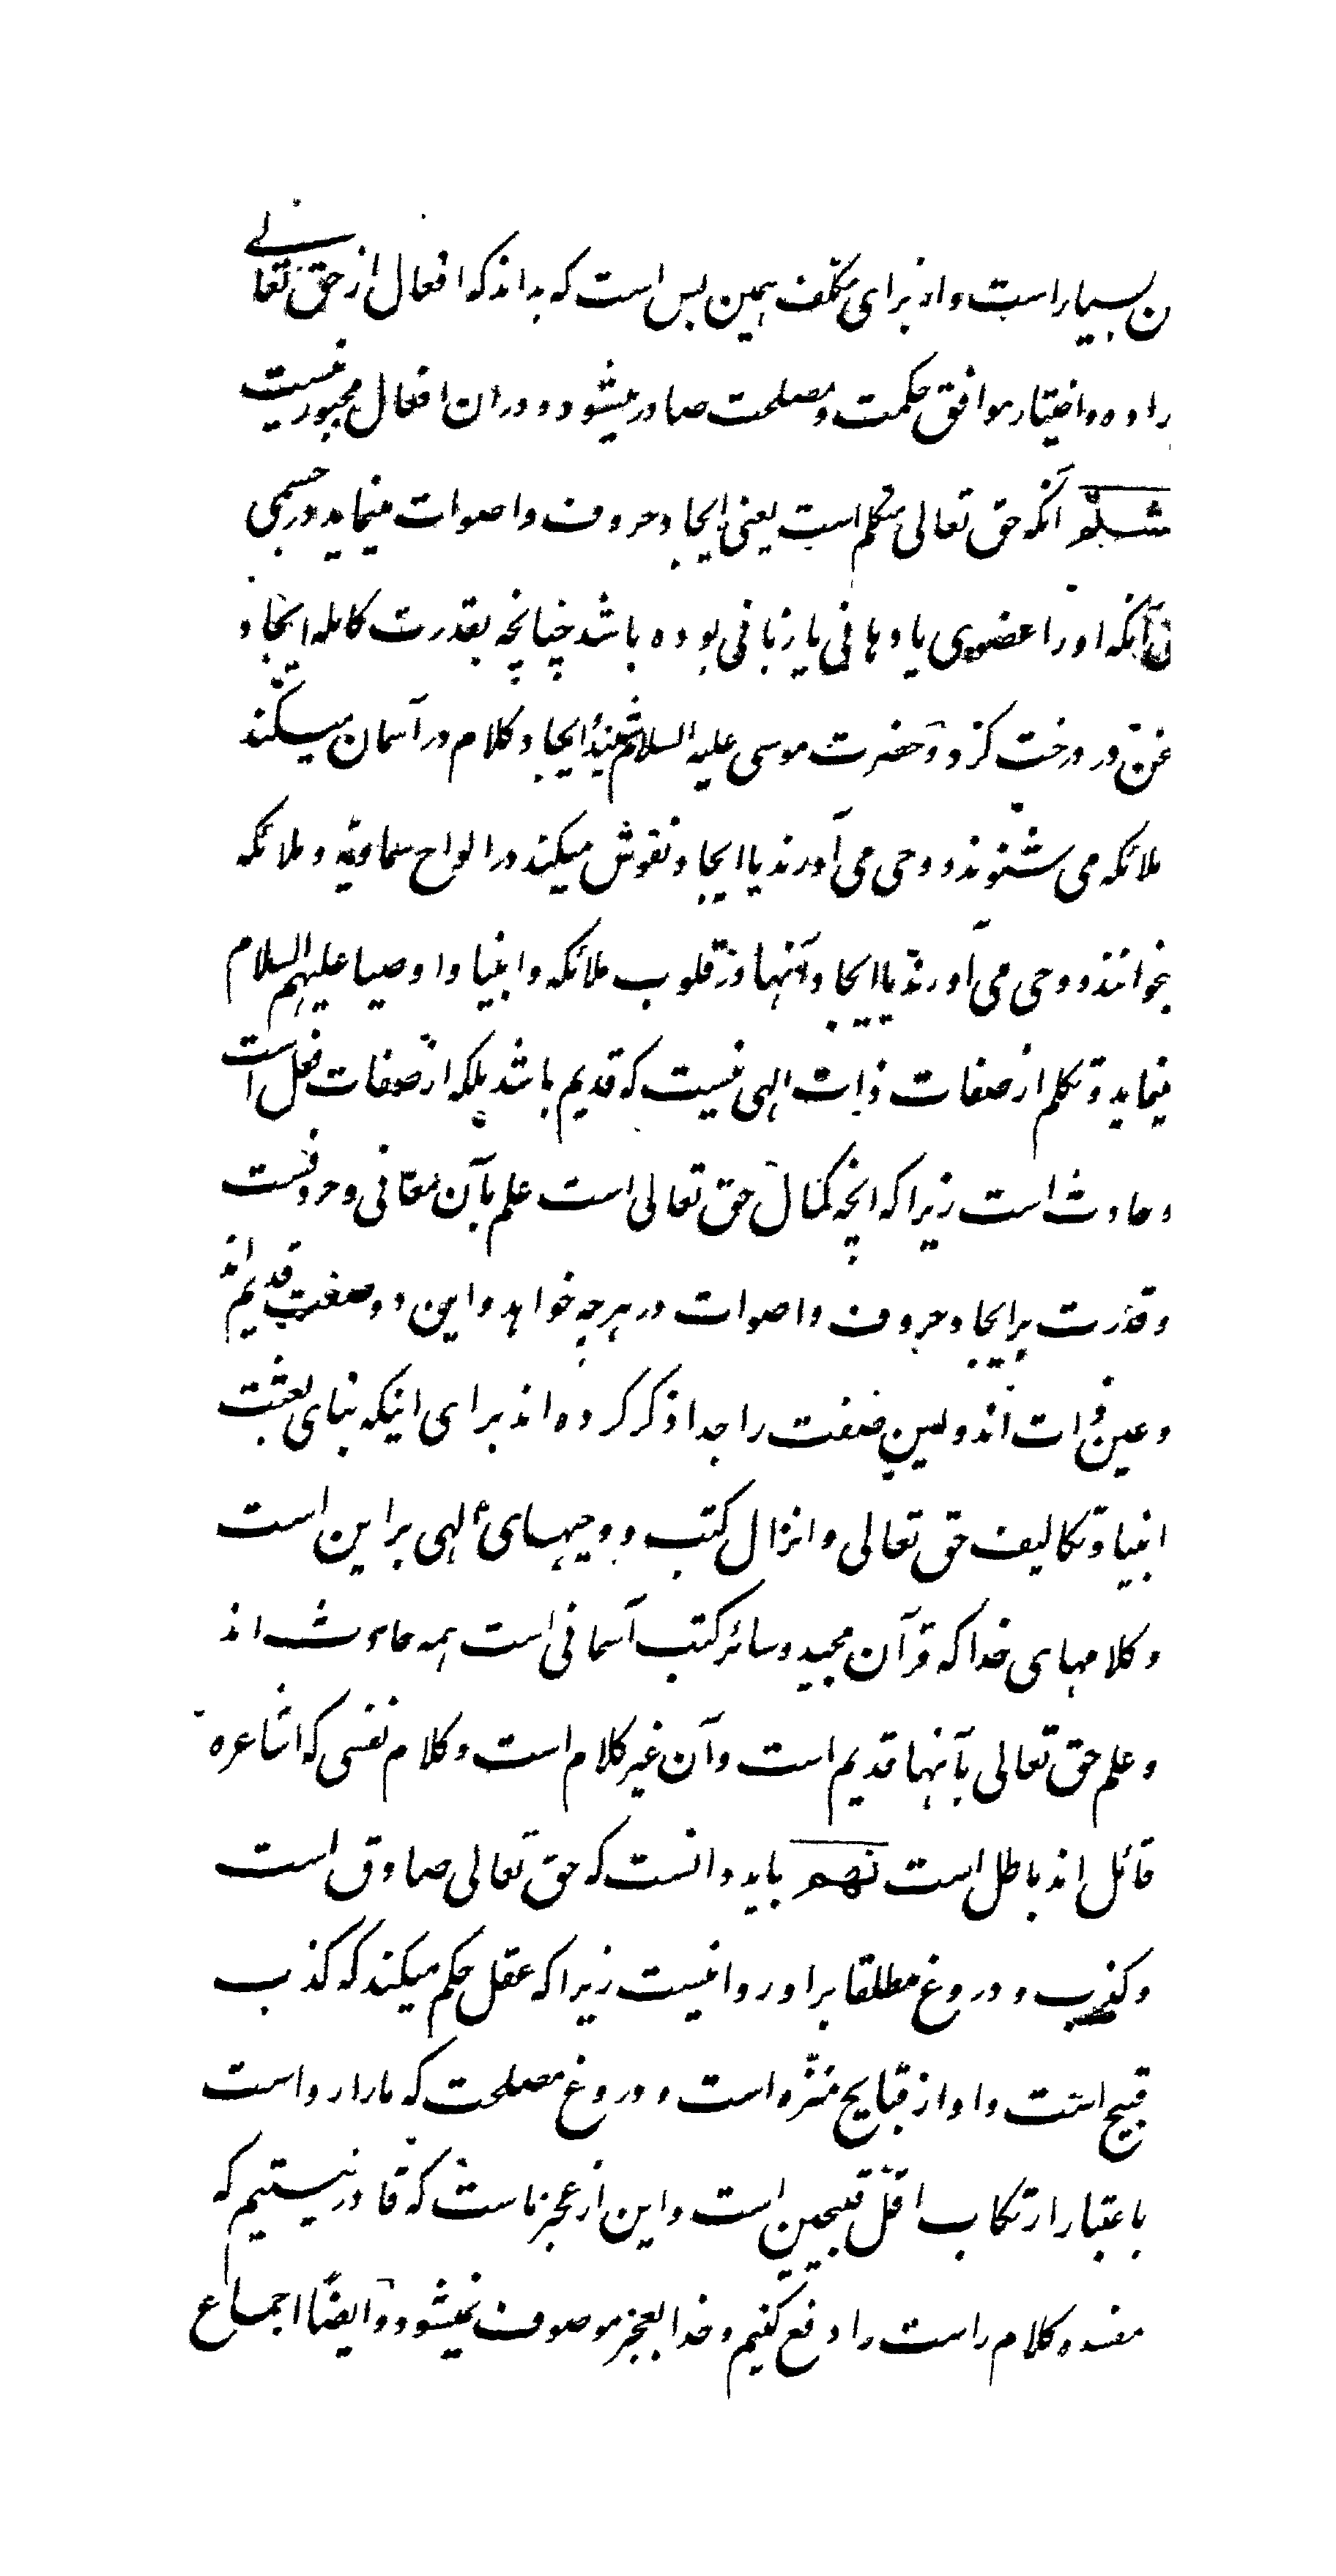 ن بسیار است و از برای مکلف همین بس است که بداند که افعال از حق تعالی
راده و اختیار موافق حکمت و مصلحت صادر میشود و در ان افعال مجبور نیست
هشتم آنکه حق تعالی متکلم است یعنی ایجاد حروف و اصوات مینماید در جسمی
آنکه او را عضوی یا دهانی یا زبانی بوده باشد چنانچه بقدرت کامله ایجاد
سخن در درخت کرد و حضرت موسی علیه السلام شنید و ایجاد کلام در آسمان میکند
ملائکه می شنوند و وحی می آورند یا ایجاد نقوش میکند در الواح سماویه و ملائکه
بخوانند و وحی می آورند یا ایجاد آنها در قلوب ملائکه و انبیا و اوصیا علیهم السلام
مینماید و تکلم از صفات ذات الهی نیست که قدیم باشد بلکه از صفات فعل است
و حادث است زیرا که انچه کمال حق تعالی است علم بآن معانی و حروفست
و قدرت بر ایجاد حروف و اصوات در هر چه خواهد و این دو صفت قدیم اند
و عین ذات اند و این صفت را جدا ذکر کرده اند برای اینکه بنای بعثت
انبیا و تکالیف حق تعالی و انزال کتب و وحیهای الهی بر این است
و کلامهای خدا که قرآن مجید و سائر کتب آسمانی است همه حادث اند
و علم حق تعالی بآنها قدیم است و آن غیر کلام است و کلام نفسی که اشاعره
قائل اند باطل است نهم باید دانست که حق تعالی صادق است
و کذب و دروغ مطلقا بر او روا نیست زیرا که عقل حکم میکند که کذب
قبیح است و او از قبایح منزّه است و دروغ مصلحت که ما را رواست
باعتبار ارتکاب اقل قبیحین است و این از عجز ماست که قادر نیستیم که
مفسده کلام راست را دفع کنیم و خدا بعجز موصوف نمیشود و ایضًا اجماع